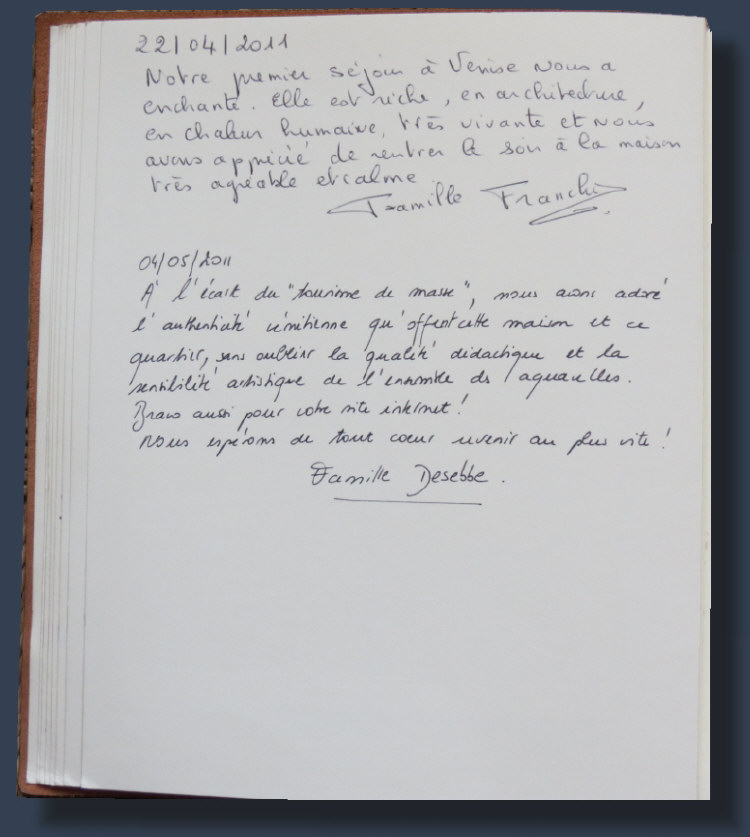 22/04/2011
Notre premier séjour à Venise nous a
enchanté. Elle est riche, en architecture,
en chaleur humaine, très vivante et nous
avons apprécié de rentrer le soir à la maison
très agréable et calme.
Famille Franchi
04/05/2011
A l'écart du "tourisme de masse", nous avons adoré
l'authenticité vénitienne qu'offrent cette maison et ce
quartier, sans oublier la qualité didactique et la
sensibilité artistique de l'ensemble des aquarelles.
Bravo aussi pour votre site internet !
Nous espérons de tout coeur revenir au plus vite !
Famille Desebbe.